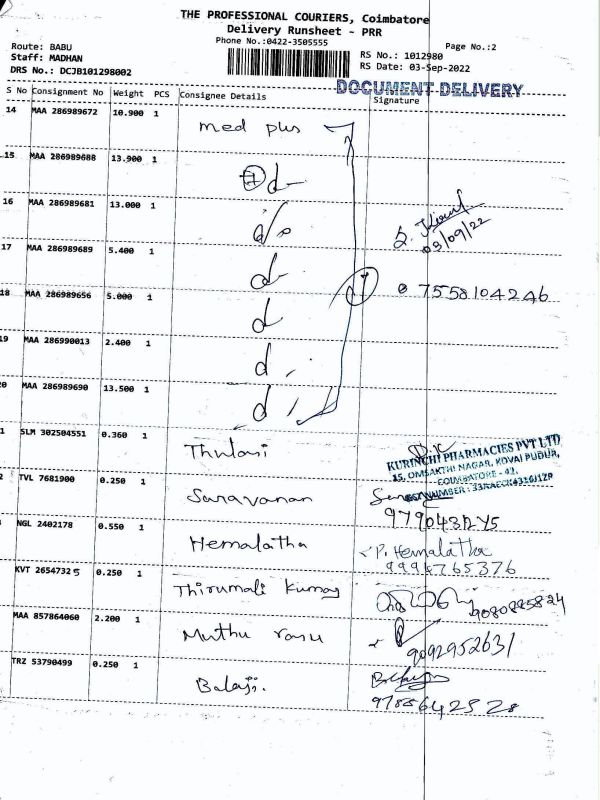 THE PROFESSIONAL COURIERS, Coimbatore
Delivery Runsheet - PRR
Phone No.:0422-3505555
Page No.:2
Route: BABU
Staff: MADHAN
DRS No.: DCJB101298002
RS No.: 1012980
RS Date: 03-Sep-2022
DOCUMENT DELIVERY
S No Consignment No Weight PCS Consignee Details Signature
14 MAA 286989672 10.900 1 med plus
15 MAA 286989688 13.900 1
16 MAA 286989681 13.000 1
03/09/22
17 MAA 286989689 5.400 1
7558104246
18 MAA 286989656 5.000 1
19 MAA 286990013 2.400 1
0 MAA 286989690 13.500 1
1 SLM 302504551 0.360 1 Thulasi
KURINCHI PHARMACIES PVT LTD
15, OMSAKTHI NAGAR, KOVAI PUDUR,
COIMBATORE - 42.
2 TVL 7681900 0.250 1 Saravanan
NGL 2402178 0.550 1 Hemalatha P. Hemalatha
9994765376
KVT 26547325 0.250 1 Thirumali Kumar
9080885824
MAA 857864060 2.200 1 Muthu
9092952631
TRZ 53790499 0.250 1 Balaji.